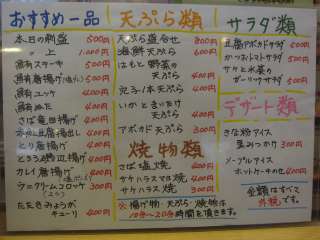 おすすめ一品
本日の刺盛 500円
〃 上 1,000円
鮪ステーキ 500円
鮪唐揚げ 500円
鮪ユッケ 400円
鮪ぬた 400円
さば竜田揚げ 400円
400円
とり唐揚げ 400円
とろろ磯辺揚げ 400円
カレイ唐揚げ 400円
クリームコロッケ 300円
たたきみょうが
キューリ 400円
天ぷら類
天ぷら盛合せ 800円
海鮮天ぷら 600円
はもと野菜の
天ぷら 400円
穴子1本天ぷら 400円
いかときすと
天ぷら 400円
アボカド天ぷら 300円
焼物類
さば塩焼 400円
サケハラス焼 400円
サケハラス焼 300円
※揚げ物・天ぷら・焼物は
10分〜20分時間を頂きます。
サラダ類
豆腐アボカドサラダ 500円
かつおトマトサラダ 500円
サケと水菜の
ガーリックサラダ 500円
デザート類
きな粉アイス
黒みつかけ 300円
メープルアイス
ホットケーキのせ 400円
金額はすべて
外税です。